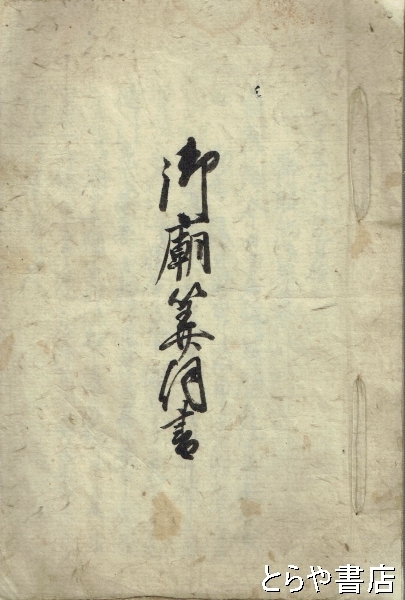 御廟算伺書
とらや書店